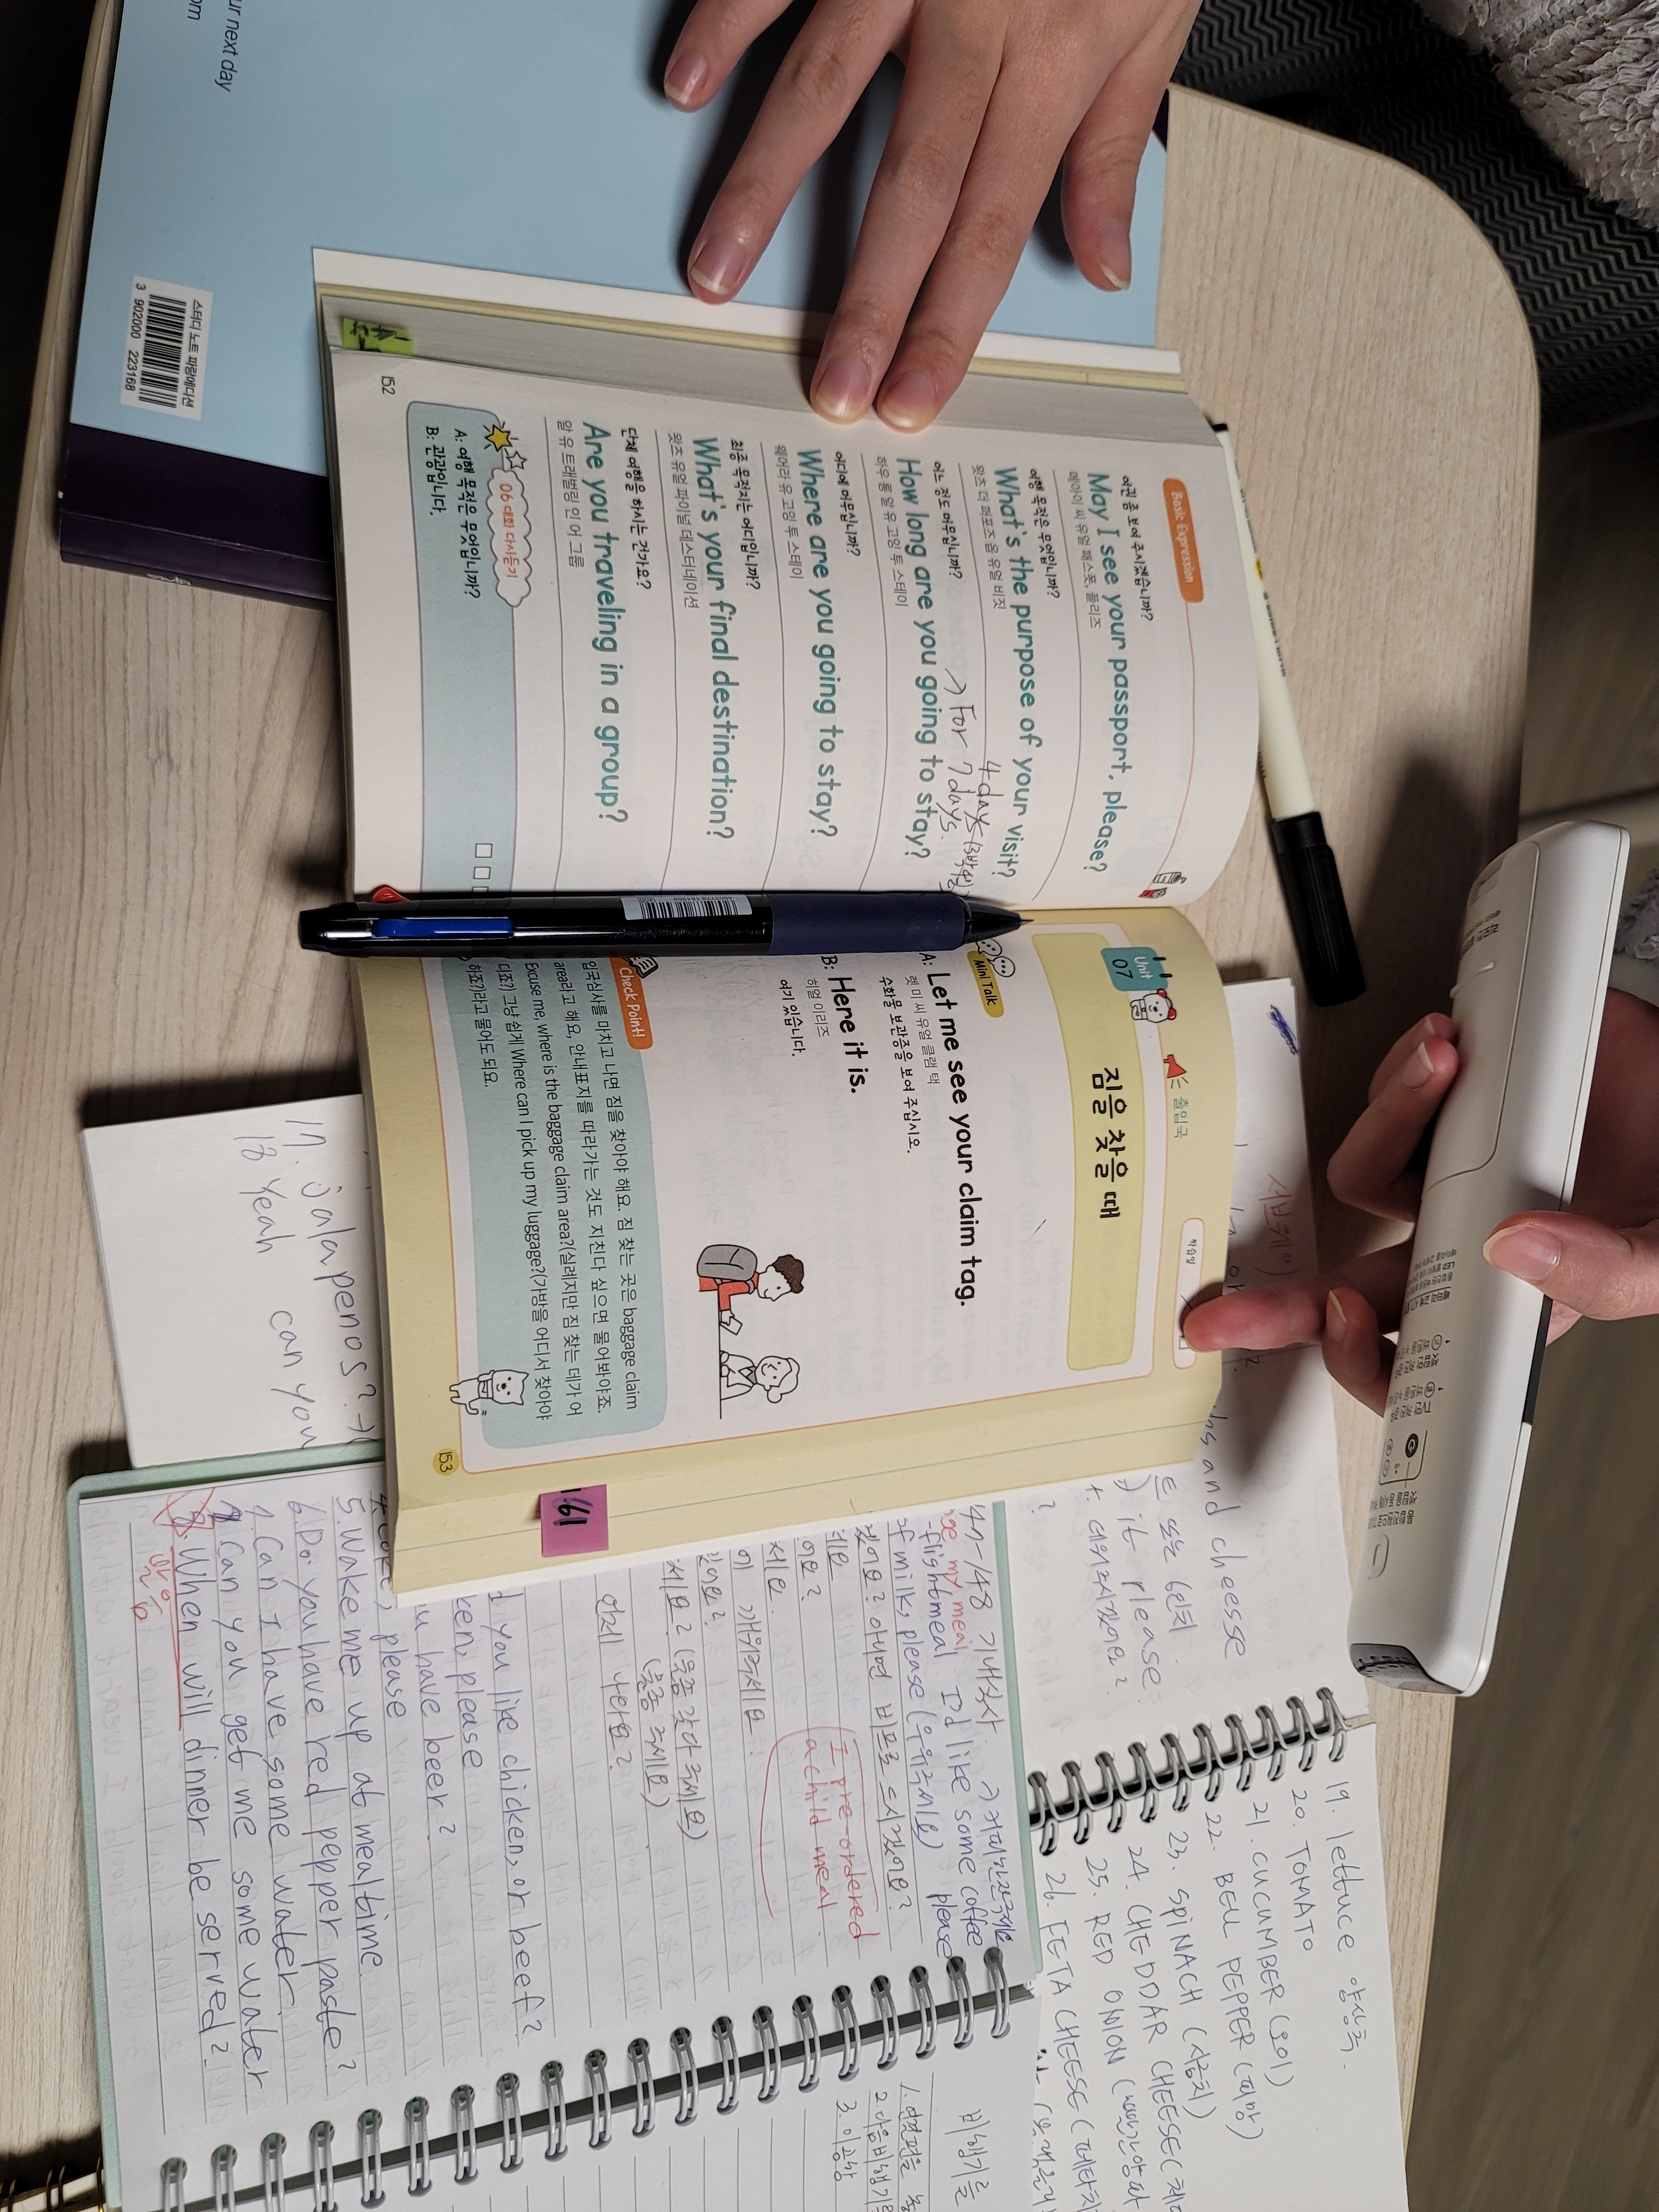 ur next day
om
스터디 노트 파랑에디션
3 902000 223168
Basic Expression
여권 좀 보여 주시겠습니까?
May I see your passport, please?
메아이 씨 유얼 패스폿, 플리즈
여행 목적은 무엇입니까?
What's the purpose of your visit?
왓츠 더 퍼포즈 옵 유얼 비짓
4days
어느 정도 머무십니까?
> For 7days.
How long are you going to stay?
하우 롱 알 유 고잉 투 스테이
어디에 머무십니까?
Where are you going to stay?
웨어라 유 고잉 투 스테이
최종 목적지는 어디입니까?
What's your final destination?
왓츠 유얼 파이널 데스터네이션
단체 여행을 하시는 건가요?
Are you traveling in a group?
알 유 트래벌링 인 어 그룹
06 대화 다시듣기
A: 여행 목적은 무엇입니까?
B: 관광입니다.
152
출입국
학습일
Unit
07
짐을 찾을 때
Mini Talk
A: Let me see your claim tag.
렛 미 씨 유얼 클램 택
수화물 보관증을 보여 주십시오.
B: Here it is.
히얼 이리즈
여기 있습니다.
Check Point!
입국심사를 마치고 나면 짐을 찾아야 해요. 짐 찾는 곳은 baggage claim
area라고 해요, 안내표지를 따라가는 것도 지친다 싶으면 물어봐야죠.
Excuse me, where is the baggage claim area?(실례지만 짐 찾는 데가 어
디죠?) 그냥 쉽게 Where can I pick up my luggage?(가방을 어디서 찾아야
하죠?)라고 물어도 되요.
153
17. jalapenos?
18 Yeah can you
and cheese
또는 6인치
it please.
데워주시겠어요?
47-148 기내식사.
my meal I'd like some coffee
flight meal please
of milk, please (우유주세요)
아니면 비프로 드시겠어요?
I pre-ordered
a child meal
깨워주세요.
세요? (물좀 갖다 주세요)
(물좀 주세요)
언제 나와요?
d you like chicken, or beef?
ken, please
u have beer?
please
5. Wake me up at mealtime.
6. Do you have red pepper paste?
7. Can I have some water.
Can you get me some water
When will dinner be served?
19. lettuce 양상추.
20. TOMATO
21. CUCUMBER (오이)
22. BELL PEPPER (피망)
23. SPINACH (시금치)
24. CHEDDAR CHEESE
25. RED ONION
26. FETA CHEESE
비행기를
3. 이공항